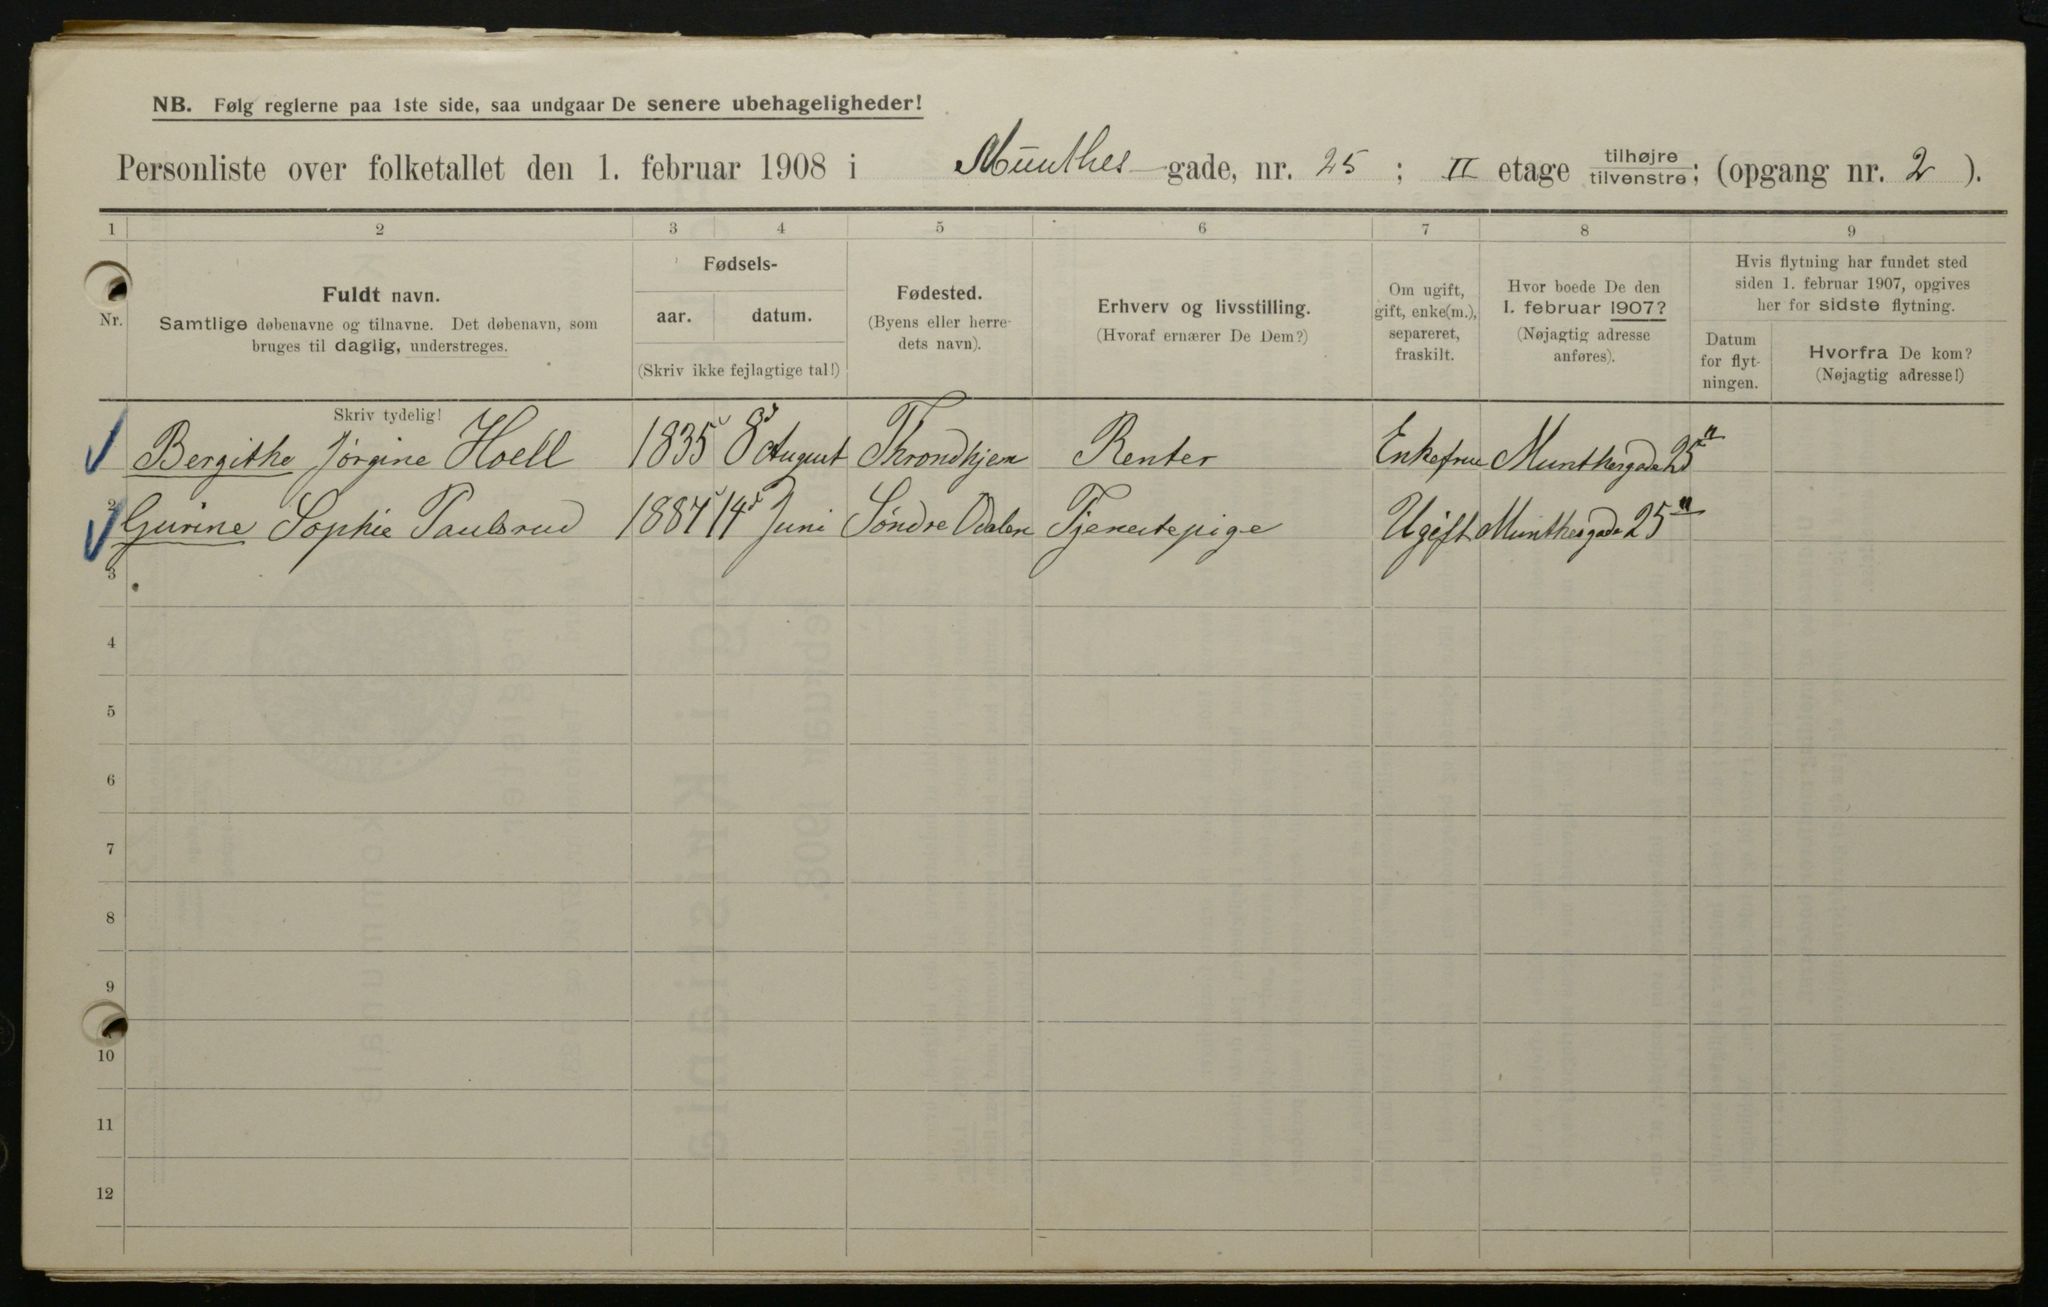 NB. Følg reglerne paa 1ste side, saa undgaar De senere ubehageligheder!
Personliste over folketallet den 1. februar 1908 i Munthes-gade, nr. 25 ; II etage tilhøjre tilvenstre; (opgang nr. 2 ).
1 2 3 4 5 6 7 8 9
Nr.
Fuldt navn.
Samtlige døbenavne og tilnavne. Det døbenavn, som
bruges til daglig, understreges.
Skriv tydelig!
Fødsels-
aar. datum.
(Skriv ikke fejlagtige tal!)
Fødested.
(Byens eller herre-
dets navn).
Erhverv og livsstilling.
(Hvoraf ernærer De Dem?)
Om ugift,
gift, enke(m.),
separeret,
fraskilt.
Hvor boede De den
1. februar 1907?
(Nøjagtig adresse
anføres).
Hvis flytning har fundet sted
siden 1. februar 1907, opgives
her for sidste flytning.
Datum
for flyt-
ningen.
Hvorfra De kom?
(Nøjagtig adresse!)
Bergithe Jørgine Hoell 1835 8 August Throndhjem Renter Enkefrue Munthesgade 25 II
2 Gurine Sophie Paulsrud 1887 14 Juni Søndre Odalen Tjenestepige Ugift Munthesgade 25 II
3
4
5
6
7
8
9
10
11
12